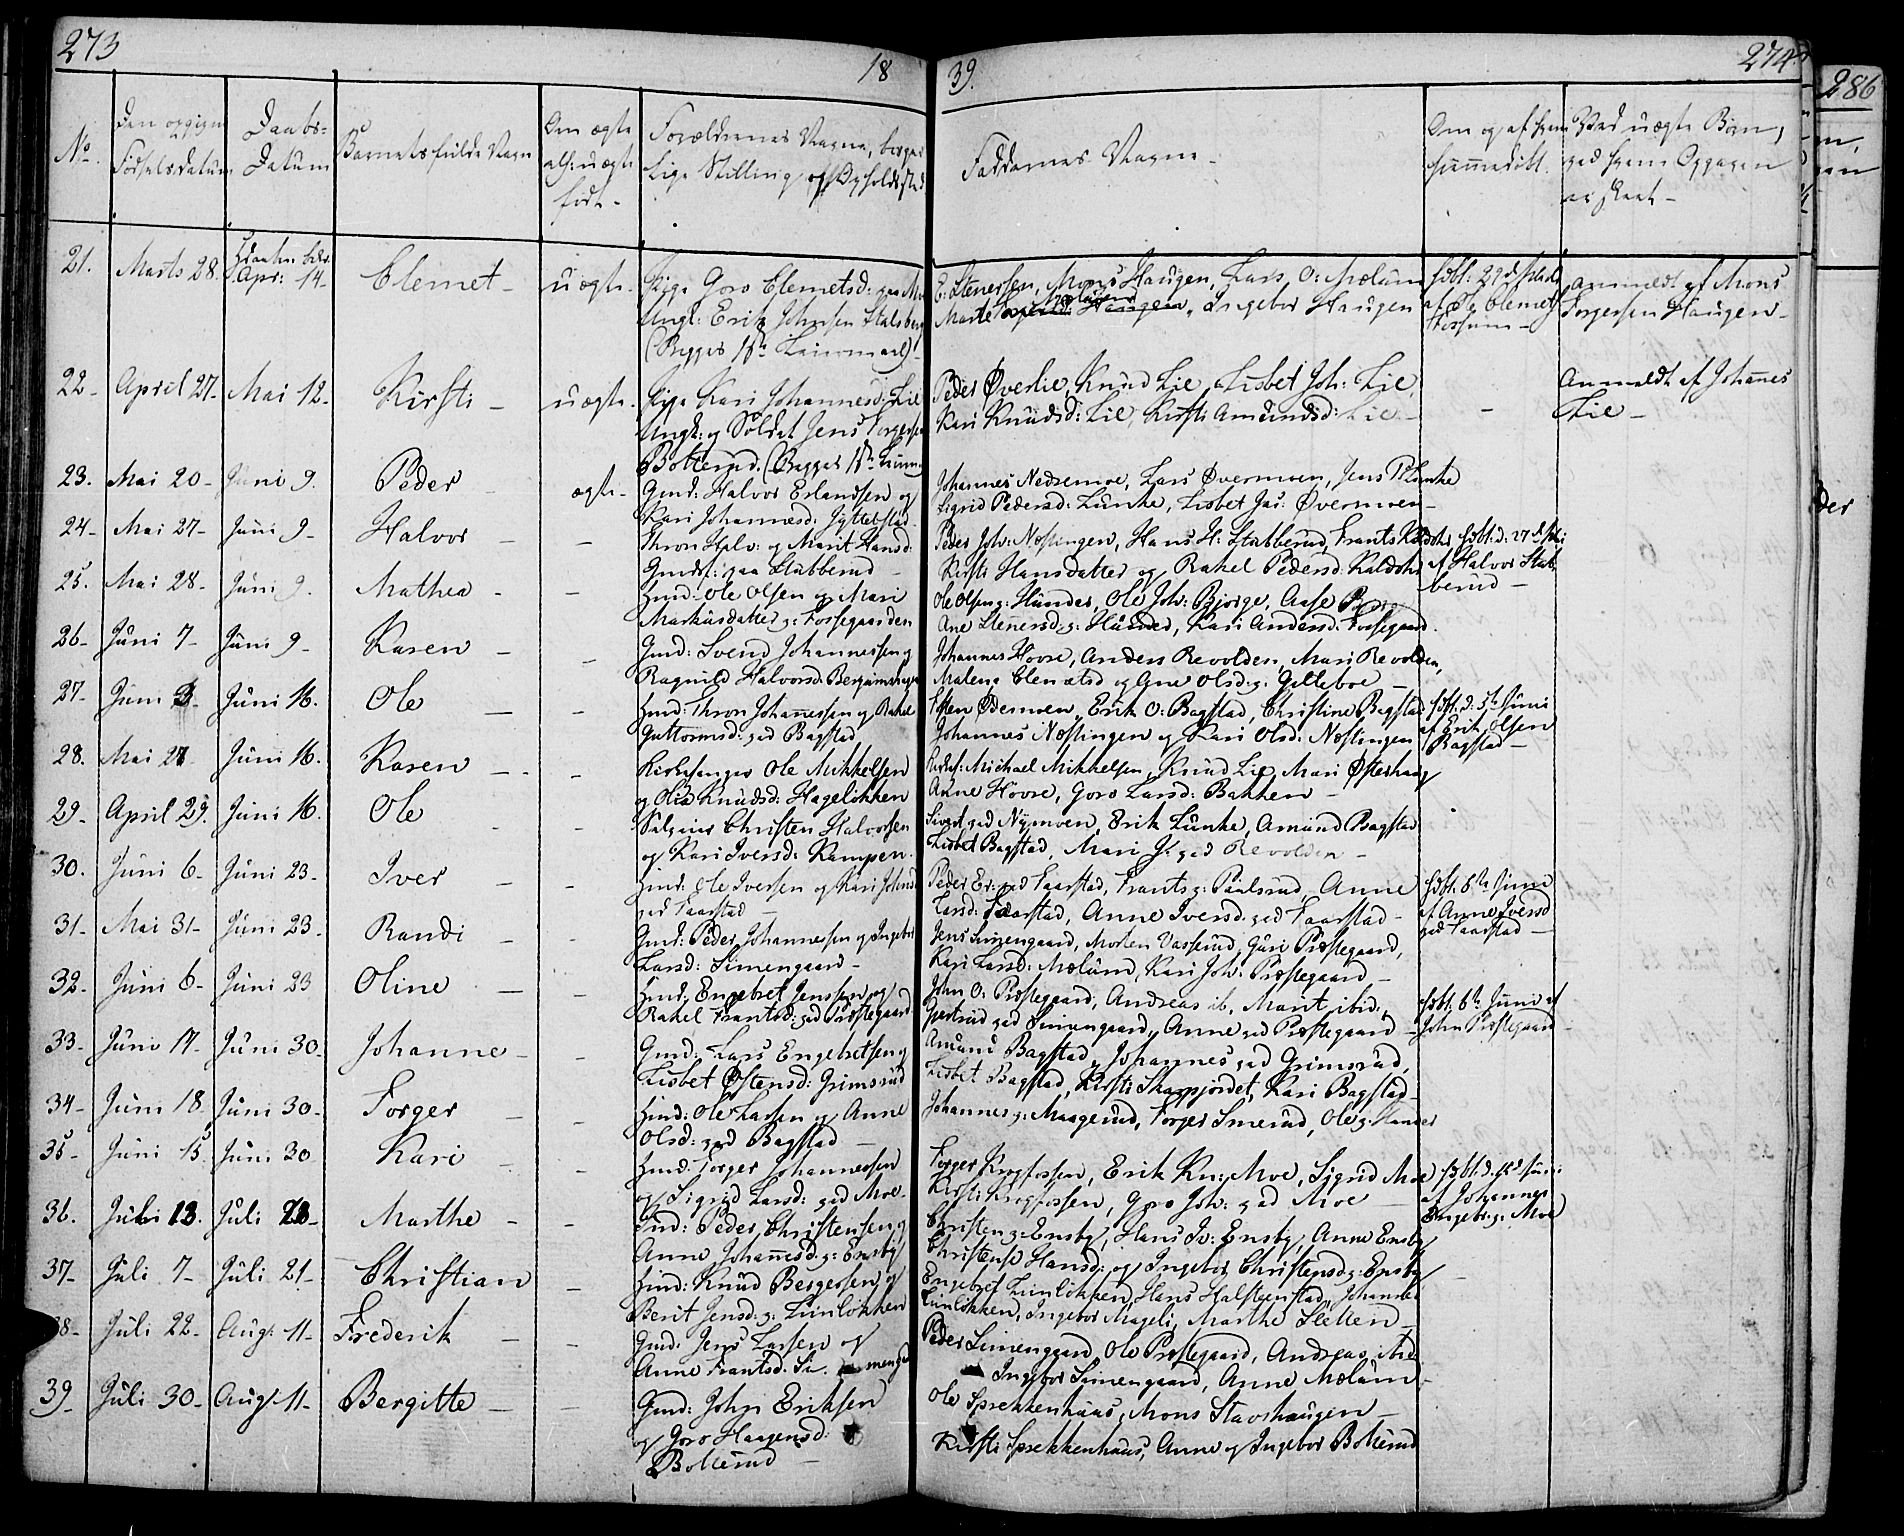 273
18
39.
274
286
No.
Den opgivne Fødselsdatum
Daabs-Datum
Barnets fulde Navn
Om ægte eller uægte født
Forældrenes Navne, borgerlige Stilling og Opholdssted
Faddernes Navne
Ved uægte Børn, ved hvem Opgaven er skeet
21. Marts 28. Apr: 14 Clemet uægte
Pige Goro Clemetsd:
Ungk: Erik Johnsen Stalsberg
(Begges 1ste Leiermaal)
E: Stenersen, Mons Haugen, Lars O: Mølum
Marte Haugen, Ingebor Haugen
hdbt: 29d Marts af Ole Clemets
anmeldt af Mons Torgersen Haugen
22 April 27 Mai 12 Kirsti uægte
Pige Kari Johannesd: Lie
Ungk: og Soldat Jens Torgersen
Bollerud. (Begges 1ste
Peder Øverlie, Knud Lie, Lisbet Joh: Lie,
Kari Knudsd: Lie, Kirsti Amundsd: Lie
Anmeldt af Johannes Lie
23. Mai 20 Juni 9. Peder ægte
Gmd: Halvor Erlandsen og
Kari Johannesd:
Johannes Nedremoe, Lars Øvermoen, Jens P: Lunke
Sigrid Pedersd: Lunke, Lisbet Jac: Øvermoen
24 Mai 27 Juni 9 Halvor
Thron Halv: og Marit Hansd:
Gmdsf: paa Stubberud
Peder Joh: Næstingen, Hans H: Stubberud, Frants Kaldohr
Kirsti Hansdatter og Rakel Pedersd: Kaldohr
af Halvor Stubberud
25. Mai 28 Juni 9. Mathea
Hmd: Ole Olsen og Mari
Markusdatter g: Fossegaarden
Ole Olsen g: Hunder, Ole Joh: Bjørge, Aase
Ane Stenersd: g: Hunder, Kari Andersd: Fossegaard.
26 Juni 7 Juni 9 Karen
Gmd: Svend Johannessen og
Ragnild Halvorsd:
Johannes Hovre, Anders Revolden, Mari Revolden,
Malene Clemetsd og Ane Olsd: g: Gilleboe
27 Juni 3 Juni 16. Ole
Hmd: Thron Johannessen og Rakel
Guttormsd: ved Bagstad
Østen Ødemoen, Erik O: Bagstad, Christine Bagstad
Johannes Næstingen og Kari Olsd: Næstingen
hdbt: d: 5te Juni af Erik Olsen Bagstad
28. Mai 21 Juni 16. Karen
Kirkesanger Ole Mikkelsen
og Olia Knudsd: Hageløkken
Michael Mikkelsen, Knud Lie, Mari Østerhaug
Anne Hovre, Goro Larsd: Bakken
29 April 29. Juni 16. Ole
Christen Halvorsen
og Kari Iversd: Kampen
Sivert ved Nymoen, Erik Lunke, Amund Bagstad
Lisbet Bagstad, Mari J: ved Revolden
30. Juni 6 Juni 23 Iver
Hmd: Ole Iversen og Kari Johnsd
ved Faarstad
Peder Er: ved Faarstad, Frants g: Paulsrud, Anne
Larsd: Faarstad, Anne Iversd: ved Faarstad
hdbt: 6te Juni af Anne Iversd ved Faarstad
31 Mai 31 Juni 23 Randi
Gmd: Peder Johannessen og Ingebor
Larsd: Simengaard
Jens Simengaard, Morten Vasserud, Guri Præstegaard,
Kari Larsd: Mølum, Kari Joh: Præstegaard
32 Juni 6 Juni 23 Oline
Hmd: Engebret Jenssen og
Rakel Frantsd: ved Præstegaard
John O: Præstegaard, Andreas ib, Marit ibid:,
Gjertrud ved Simengaard, Anne ved Præstegaard
hdbt: 6te Juni af John Præstegaard
33 Juni 17 Juni 30 Johanne
Gmd: Lars Engebretsen og
Lisbet Østensd: Grimsrud
Amund Bagstad, Johannes ved Grimsrud,
Lisbet Bagstad, Kirsti Skarpjordet, Kari Bagstad
34 Juni 18 Juni 30 Torger
Hmd: Ole Larsen og Anne
Olsd: ved Bagstad
Johannes g: Maagerud, Torger Smerud, Ole g: Hunder
35 Juni 15. Juni 30 Kari
Hmd: Torger Johannessen
og Sigrid Larsd: ved Moe
Torger Krogfossen, Erik Kn: Moe, Sigrid Moe
Kirsti Krogfossen, Goro Joh: ved Moe
af Johannes Engebr: g: Moe
36. Juli 13. Juli Marthe
Peder Christensen og
Anne Johannesd: g: Ensby
Christen g: Ensby, Hans Iv: Ensby, Anne Ensby,
Christense Hansd: og Ingebor Christensd: g: Ensby
37 Juli 7 Juli 21 Christian
Hmd: Knud Bergersen og
Berit Jensd: g: Lunløkken
Engebret Lunløkken, Hans Halsteenstad, Johannes
Lunløkken, Ingebor Mageli, Marthe Sletten
38 Juli 22 Aug: 11 Frederik
Gmd: Jens Larsen og
Anne Frantsd: Simengd
Peder Simengaard, Ole Præstegaard, Andreas ibid
Ingebor Simengaard, Anne Mølum
39 Juli 30 Aug: 11 Bergitte
Gmd: John Eriksen
og Goro Haagensd:
Bollerud
Ole Sprekkenhuus, Mons Stavshaugen
Kirsti Sprekkenhuus, Anne og Ingebor Bollerud